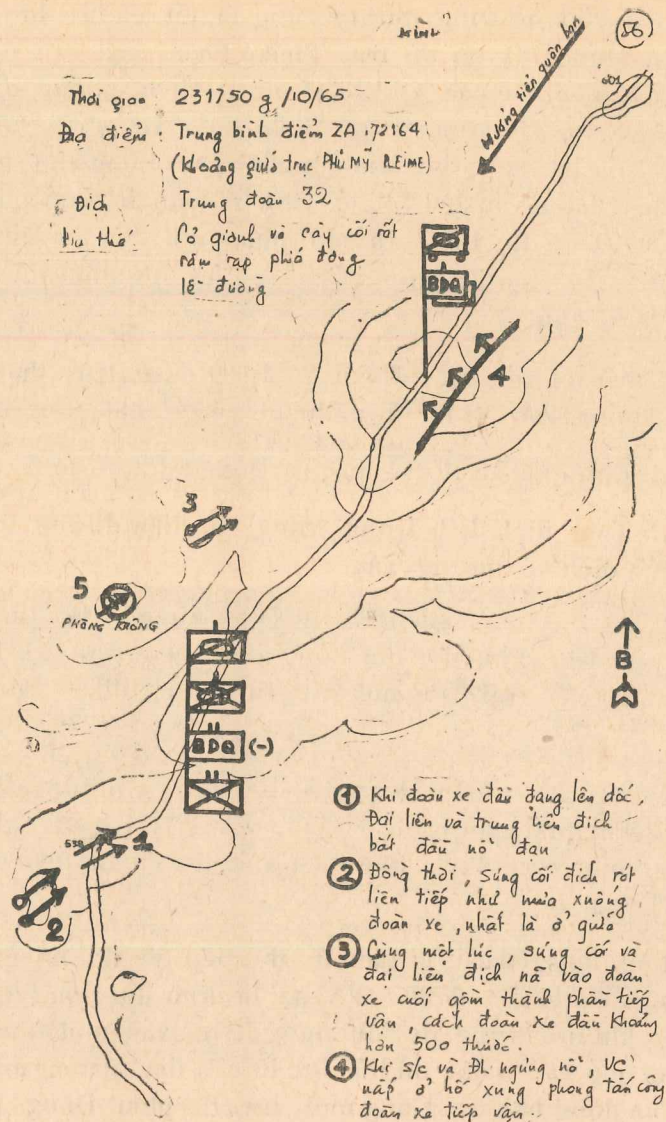 56
Hướng tiến quân bạn
Thời gian 231750 g /10/65
Địa điểm : Trung bình điểm ZA 172164
(Khoảng giữa trục PHÚ MỸ PLEIME)
Địch Trung đoàn 32
Có gianh và cây cối rất
rậm rạp phía đông
lề đường
BĐQ
4
3
5
PHÒNG KHÔNG
B
BĐQ (-)
1
538
2
① Khi đoàn xe đầu đang lên dốc,
Đại liên và trung liên địch
bắt đầu nổ đạn
② Đồng thời, súng cối địch rót
liên tiếp như mưa xuống
đoàn xe, nhất là ở giữa
③ Cùng một lúc, súng cối và
đại liên địch nã vào đoàn
xe cuối gồm thành phần tiếp
vận, cách đoàn xe đầu khoảng
hơn 500 thước.
④ Khi s/c và ĐL ngưng nổ, VC
nấp ở hố xung phong tấn công
đoàn xe tiếp vận.